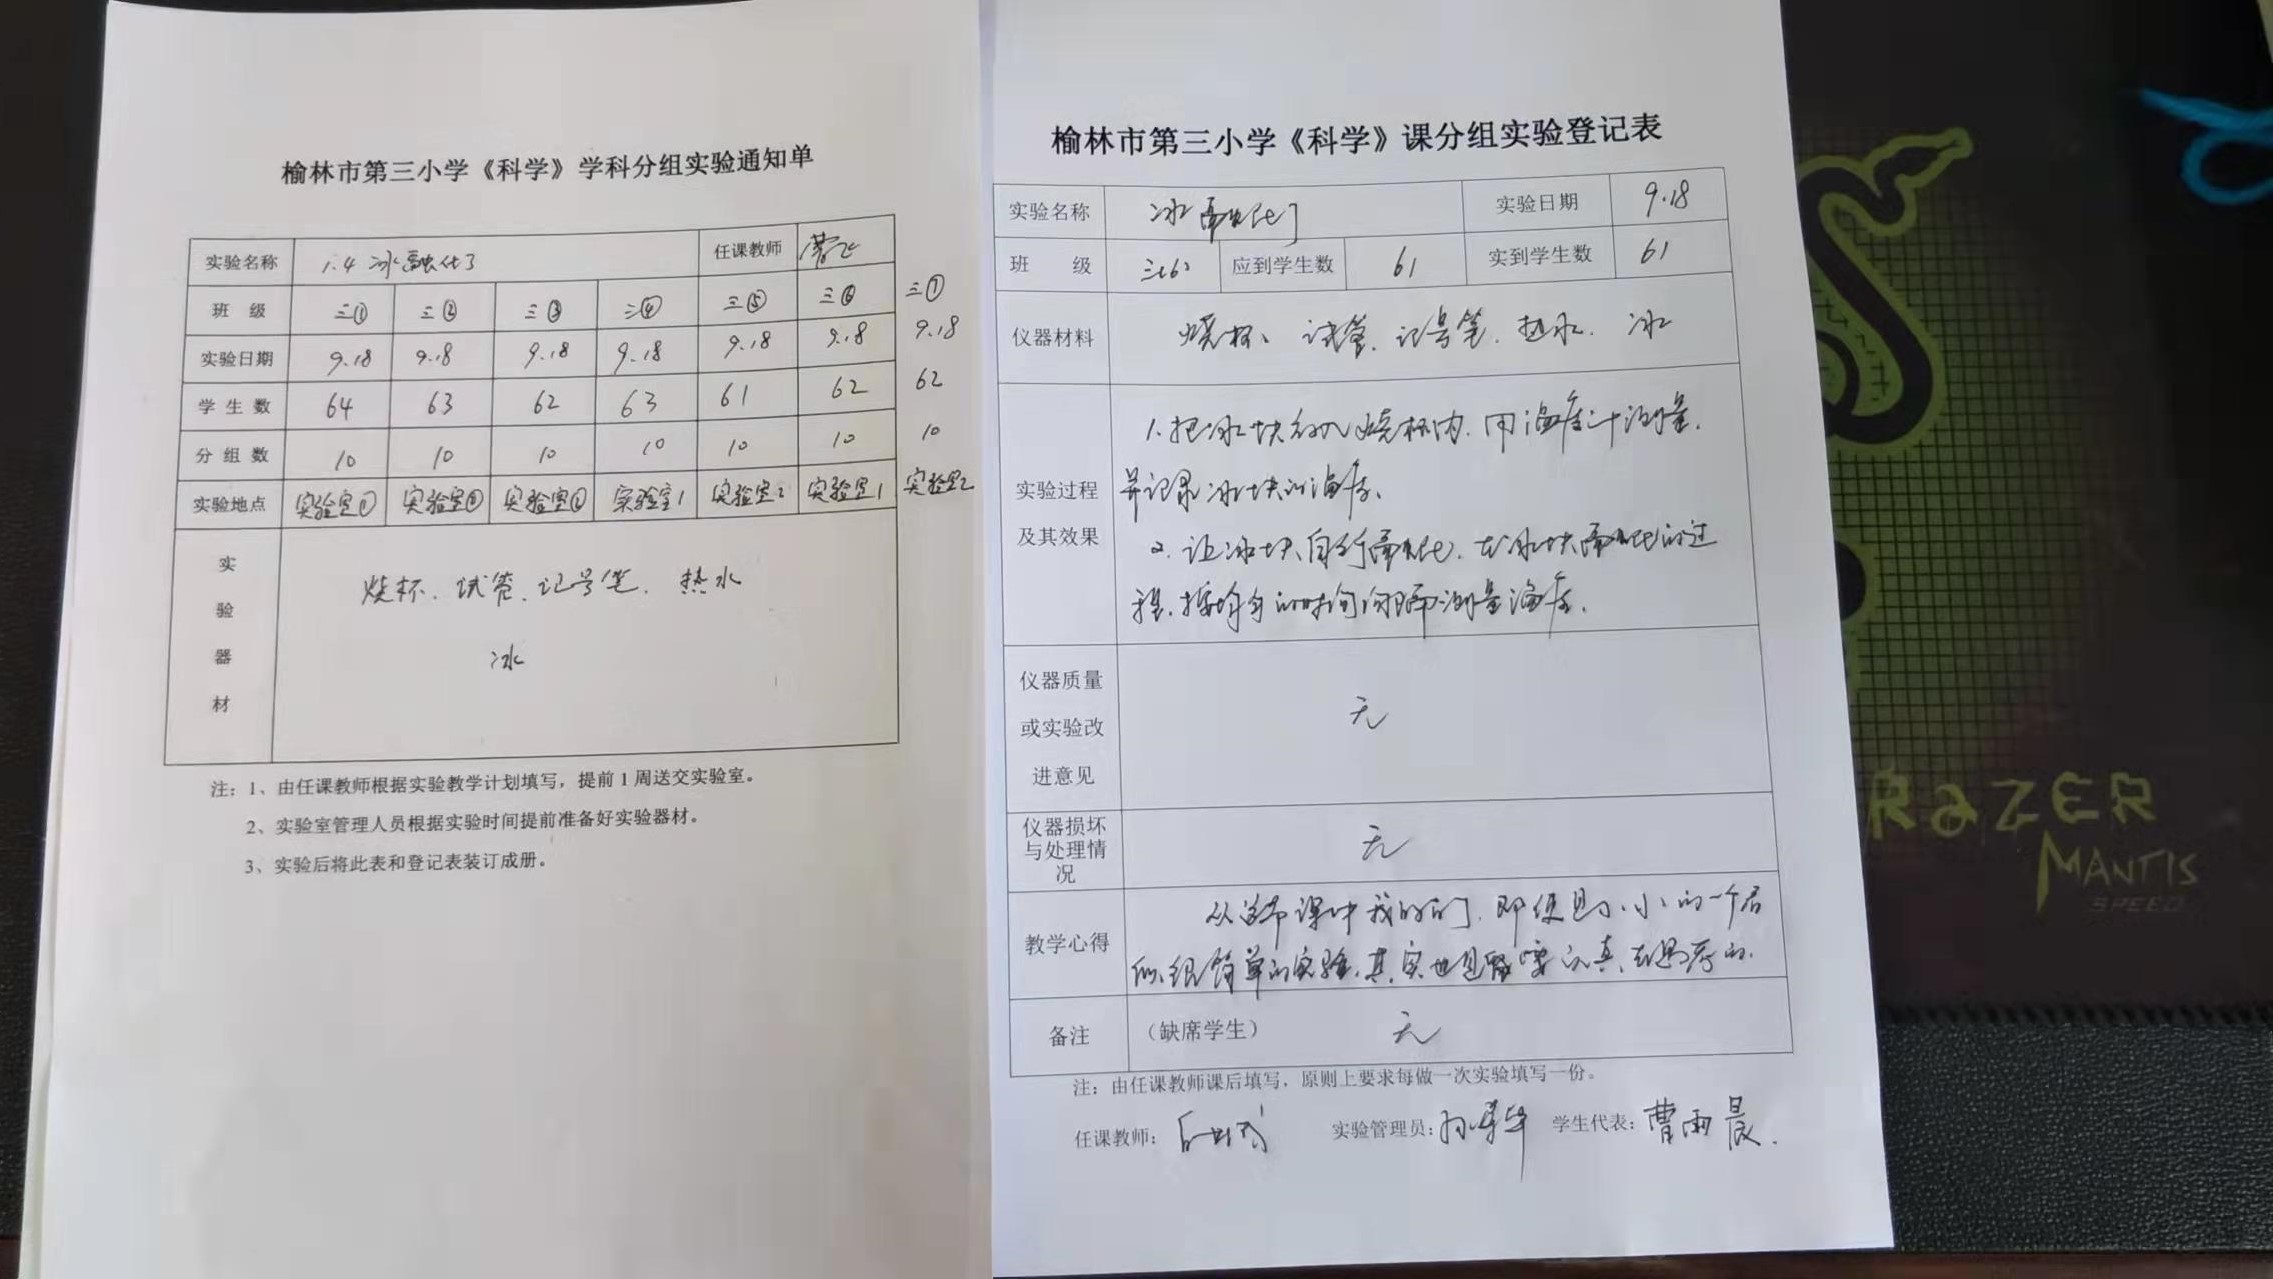 榆林市第三小学《科学》学科分组实验通知单
实验名称 1.4 冰融化了 任课教师
班 级 三① 三② 三③ 三④ 三⑤ 三⑥ 三⑦
实验日期 9.18 9.18 9.18 9.18 9.18 9.18 9.18
学生数 64 63 62 63 61 62 62
分组数 10 10 10 10 10 10 10
实验地点 实验室① 实验室② 实验室② 实验室1 实验室2 实验室1 实验室2
实验器材
烧杯、试管、记号笔、热水
冰
注：1、由任课教师根据实验教学计划填写，提前1周送交实验室。
2、实验室管理人员根据实验时间提前准备好实验器材。
3、实验后将此表和登记表装订成册。
榆林市第三小学《科学》课分组实验登记表
实验名称 冰融化了 实验日期 9.18
班 级 三(6) 应到学生数 61 实到学生数 61
仪器材料 烧杯、试管、记号笔、热水、冰
实验过程及其效果
1.把冰块放入烧杯内，用温度计测量，
并记录冰块的温度。
2.让冰块自行融化，在冰块融化的过
程，按相等的时间间隔测量温度。
仪器质量或实验改进意见 无
仪器损坏与处理情况 无
教学心得
从这节课中我明白了，即使是小小的一个看
似很简单的实验，其实也是需要认真去思考的。
备注 （缺席学生） 无
注：由任课教师课后填写，原则上要求每做一次实验填写一份。
任课教师： 实验管理员： 学生代表：曹雨晨
RAZER
MANTIS
SPEED